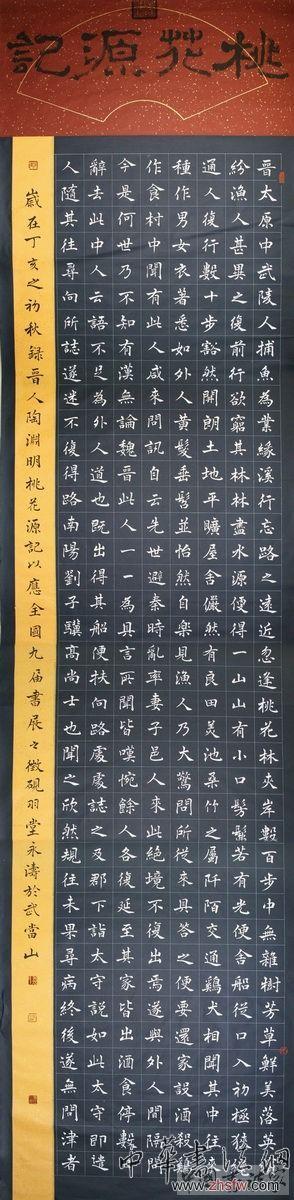 桃花源記
晉太原中武陵人捕魚為業緣溪行忘路之遠近忽逢桃花林夾岸數百步中無雜樹芳草鮮美落英
紛漁人甚異之復前行欲窮其林林盡水源便得一山山有小口髣髴若有光便舍船從口入初極狹
通人復行數十步豁然開朗土地平曠屋舍儼然有良田美池桑竹之屬阡陌交通鷄犬相聞其中往
種作男女衣著悉如外人黃髮垂髫並怡然自樂見漁人乃大驚問所從來具答之便要還家設酒殺
作食村中聞有此人咸來問訊自云先世避秦時亂率妻子邑人來此絕境不復出焉遂與外人間隔問
今是何世乃不知有漢無論魏晉此人一一為具言所聞皆嘆惋餘人各復延至其家皆出酒食停數
辭去此中人云語不足為外人道也既出得其船便扶向路處處誌之及郡下詣太守説如此太守即遣
人隨其往尋向所誌遂迷不復得路南陽劉子驥高尚士也聞之欣然規往未果尋病終後遂無問津者
歲在丁亥之初秋録晉人陶淵明桃花源記以應全國九届書展々徵硯羽堂永濤於武當山
中華書法網
www.zhsfw.com